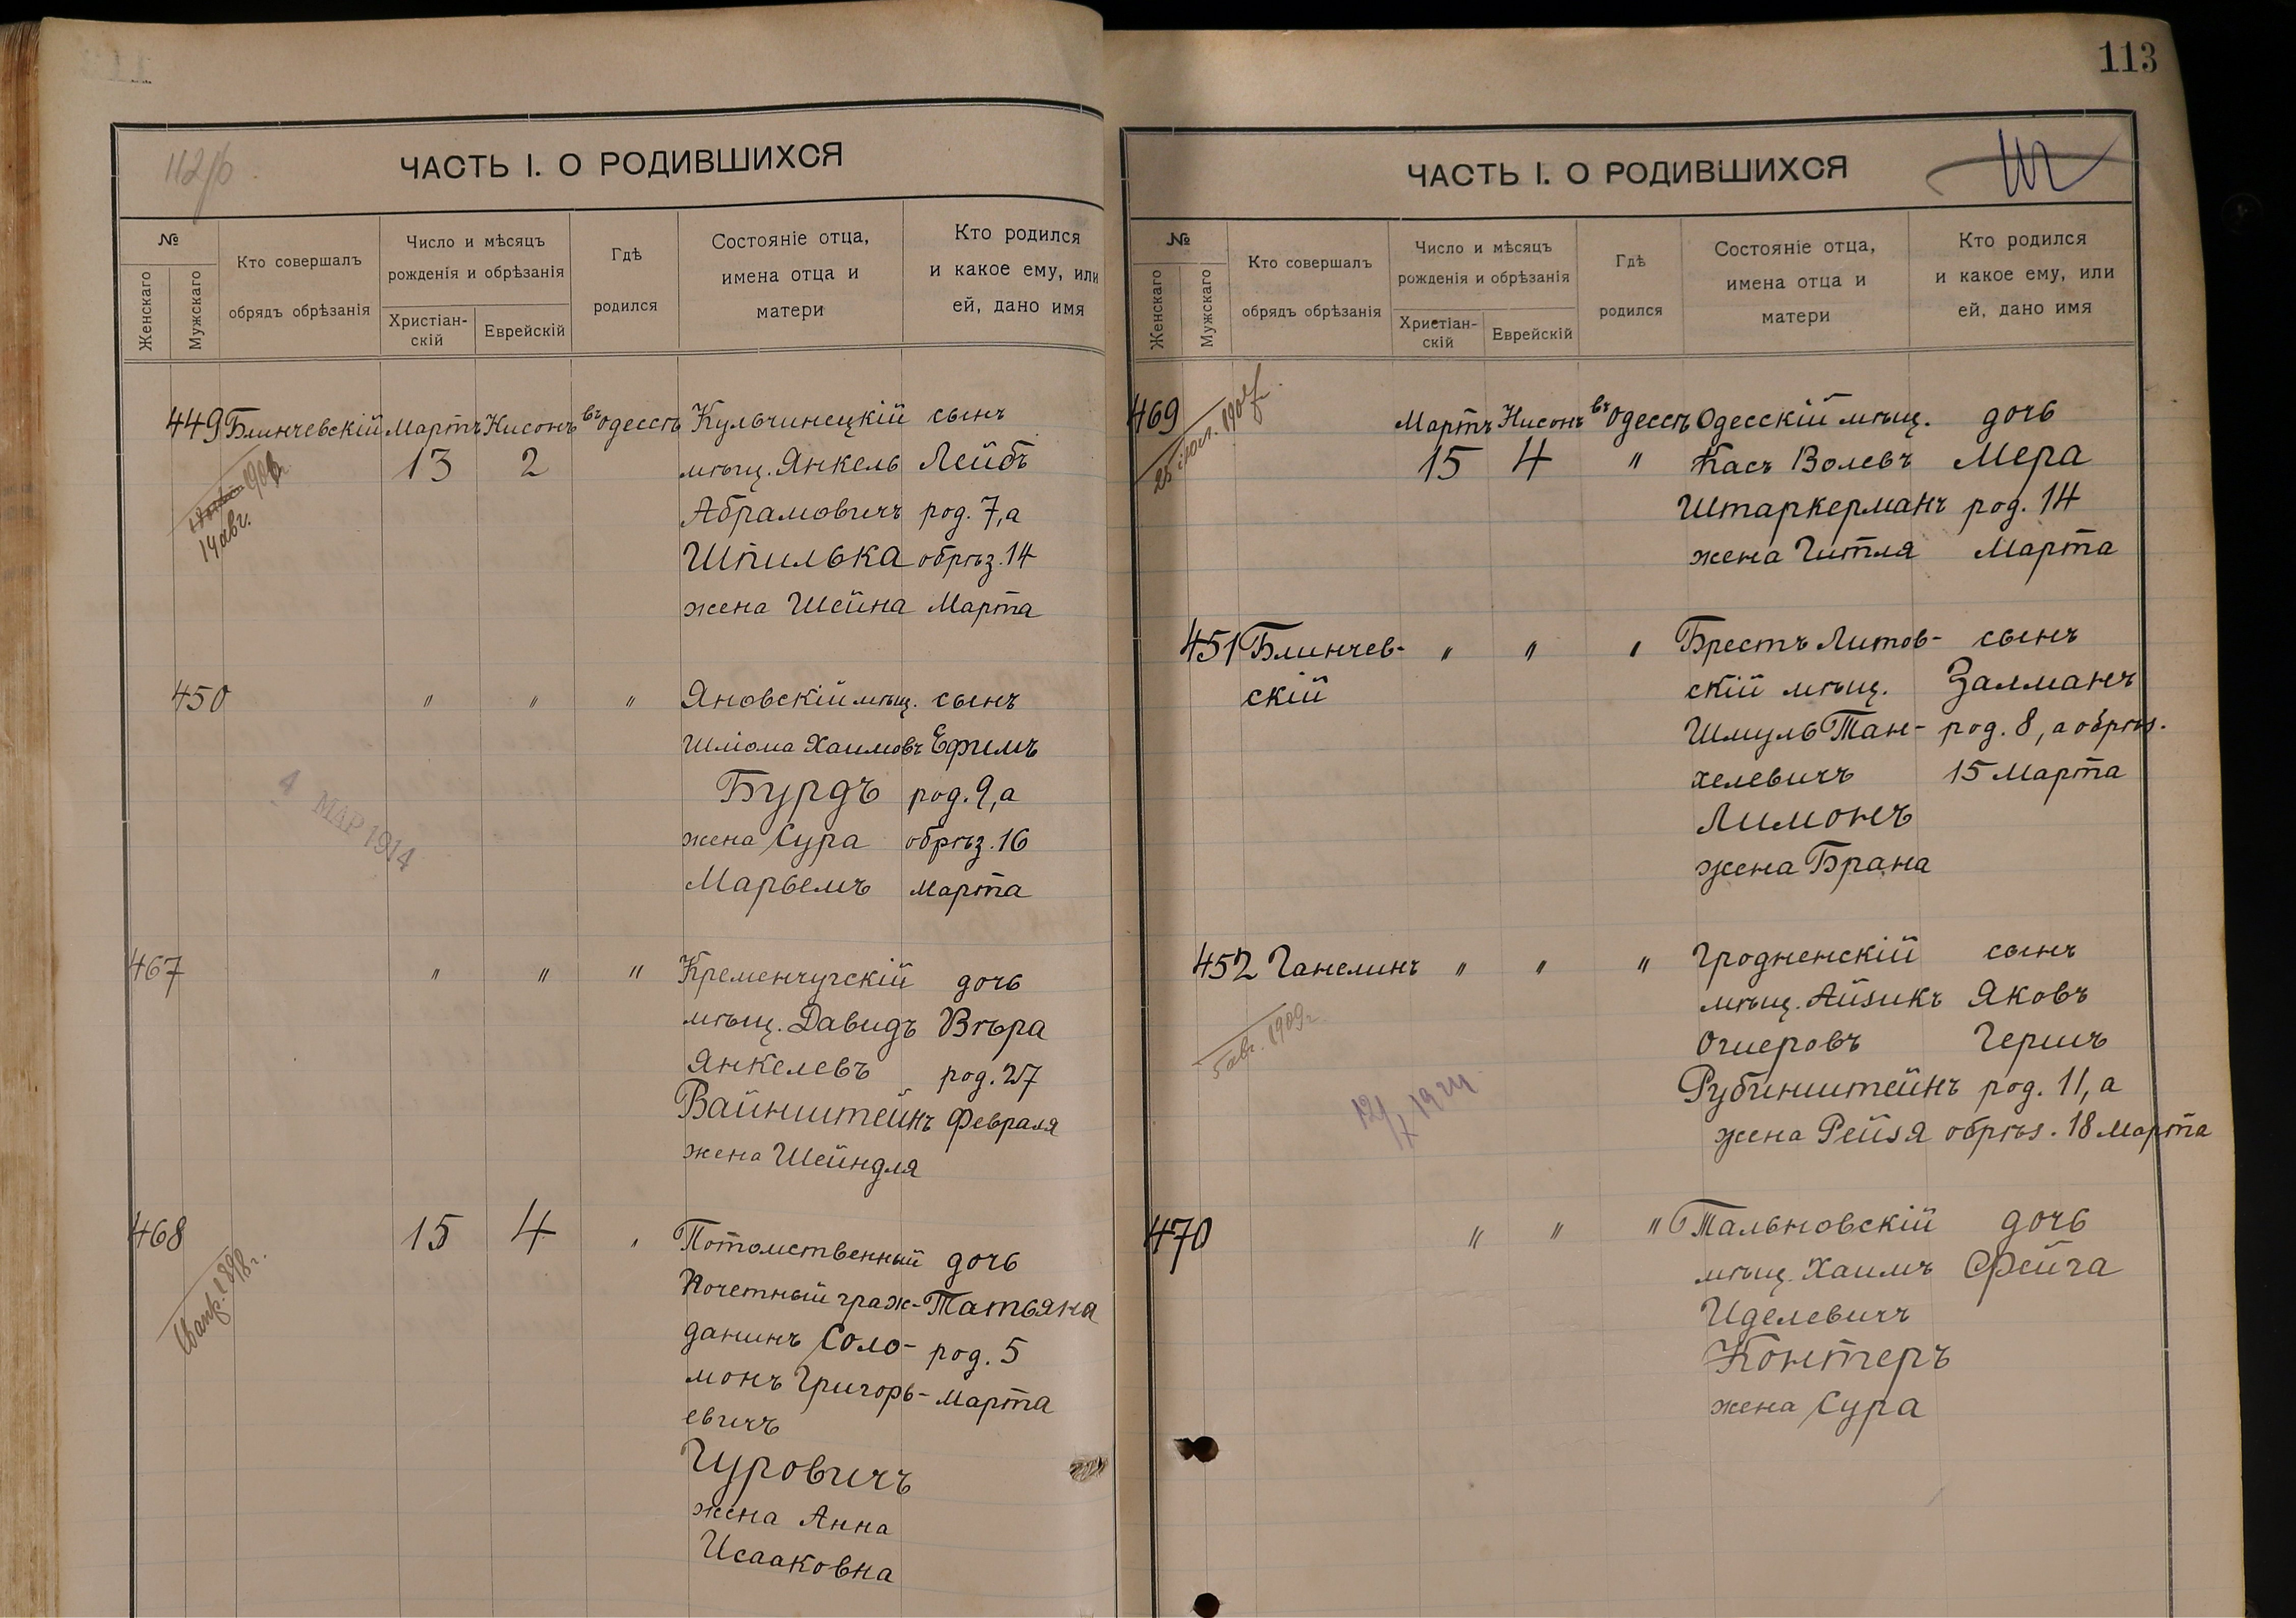 112/б
ЧАСТЬ I. О РОДИВШИХСЯ
№
Женскаго
Мужскаго
Кто совершалъ
обрядъ обрѣзанія
Число и мѣсяцъ
рожденія и обрѣзанія
Христіан-
скій
Еврейскій
Гдѣ
родился
Состояніе отца,
имена отца и
матери
Кто родился
и какое ему, или
ей, дано имя
449 Блинчевскій Мартъ Нисонъ въ Одессѣ Кульчинецкій сынъ
13 2 мѣщ. Янкель Лейбъ
Абрамовичъ род. 7, а
Шпилька обрѣз. 14
жена Шейна Марта
14 авг.
450 " " " Яновскій мѣщ. сынъ
Шліома Хаимовъ Ефимъ
Бурдъ род. 9, а
жена Сура обрѣз. 16
Марьемъ Марта
4 МАР 1914
467 " " " Кременчугскій дочь
мѣщ. Давидъ Вѣра
Янкелевъ род. 27
Вайнштейнъ Февраля
жена Шейндля
468 15 4 " Потомственный дочь
Почетный граж- Татьяна
данинъ Соло- род. 5
монъ Григорь- Марта
евичъ
Гуровичъ
жена Анна
Исааковна
113
ЧАСТЬ I. О РОДИВШИХСЯ
№
Женскаго
Мужскаго
Кто совершалъ
обрядъ обрѣзанія
Число и мѣсяцъ
рожденія и обрѣзанія
Христіан-
скій
Еврейскій
Гдѣ
родился
Состояніе отца,
имена отца и
матери
Кто родился
и какое ему, или
ей, дано имя
469 Мартъ Нисонъ въ Одессѣ Одесскій мѣщ. дочь
15 4 " Касъ Волевъ Мера
Штаркерманъ род. 14
жена Гитля Марта
451 Блинчев- " " " Брестъ Литов- сынъ
скій скій мѣщ. Залманъ
Шмуль Тан- род. 8, а обрѣз.
хелевичъ 15 Марта
Лимонъ
жена Брана
452 Ганелинъ " " " Гродненскій сынъ
мѣщ. Айзикъ Яковъ
Ошеровъ Гершъ
Рубинштейнъ род. 11, а
жена Рейзя обрѣз. 18 Марта
5 авг. 1909 г.
470 " " " Тальновскій дочь
мѣщ. Хаимъ Фейга
Иделевичъ
Контеръ
жена Сура